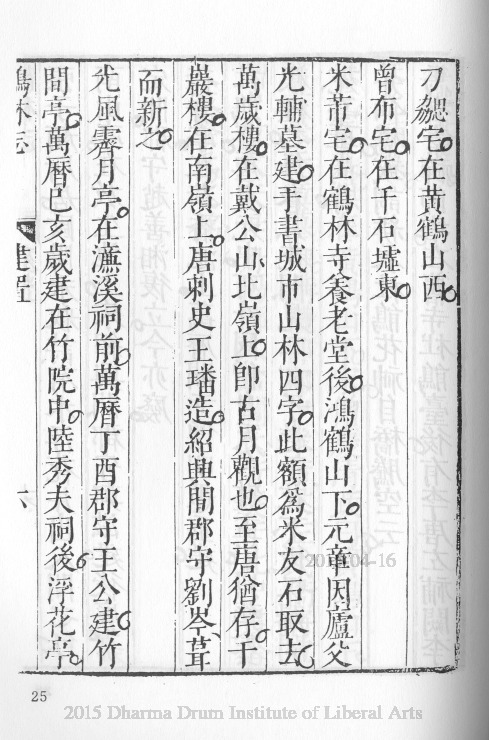 刁勰宅在黃鶴山西
曾布宅在千石墟東
米芾宅在鶴林寺養老堂後鴻鶴山下元章因廬父
光輔墓建手書城市山林四字此額爲米友石取去
萬歲樓在戴公山北嶺上卽古月觀也至唐猶存千
巖樓在南嶺上唐刺史王璠造紹興間郡守劉岑葺
而新之
光風霽月亭在濂溪祠前萬曆丁酉郡守王公建竹
間亭萬曆巳亥歲建在竹院中陸秀夫祠後浮花亭
鶴林志 建置 六
2015-04-16
25
2015 Dharma Drum Institute of Liberal Arts